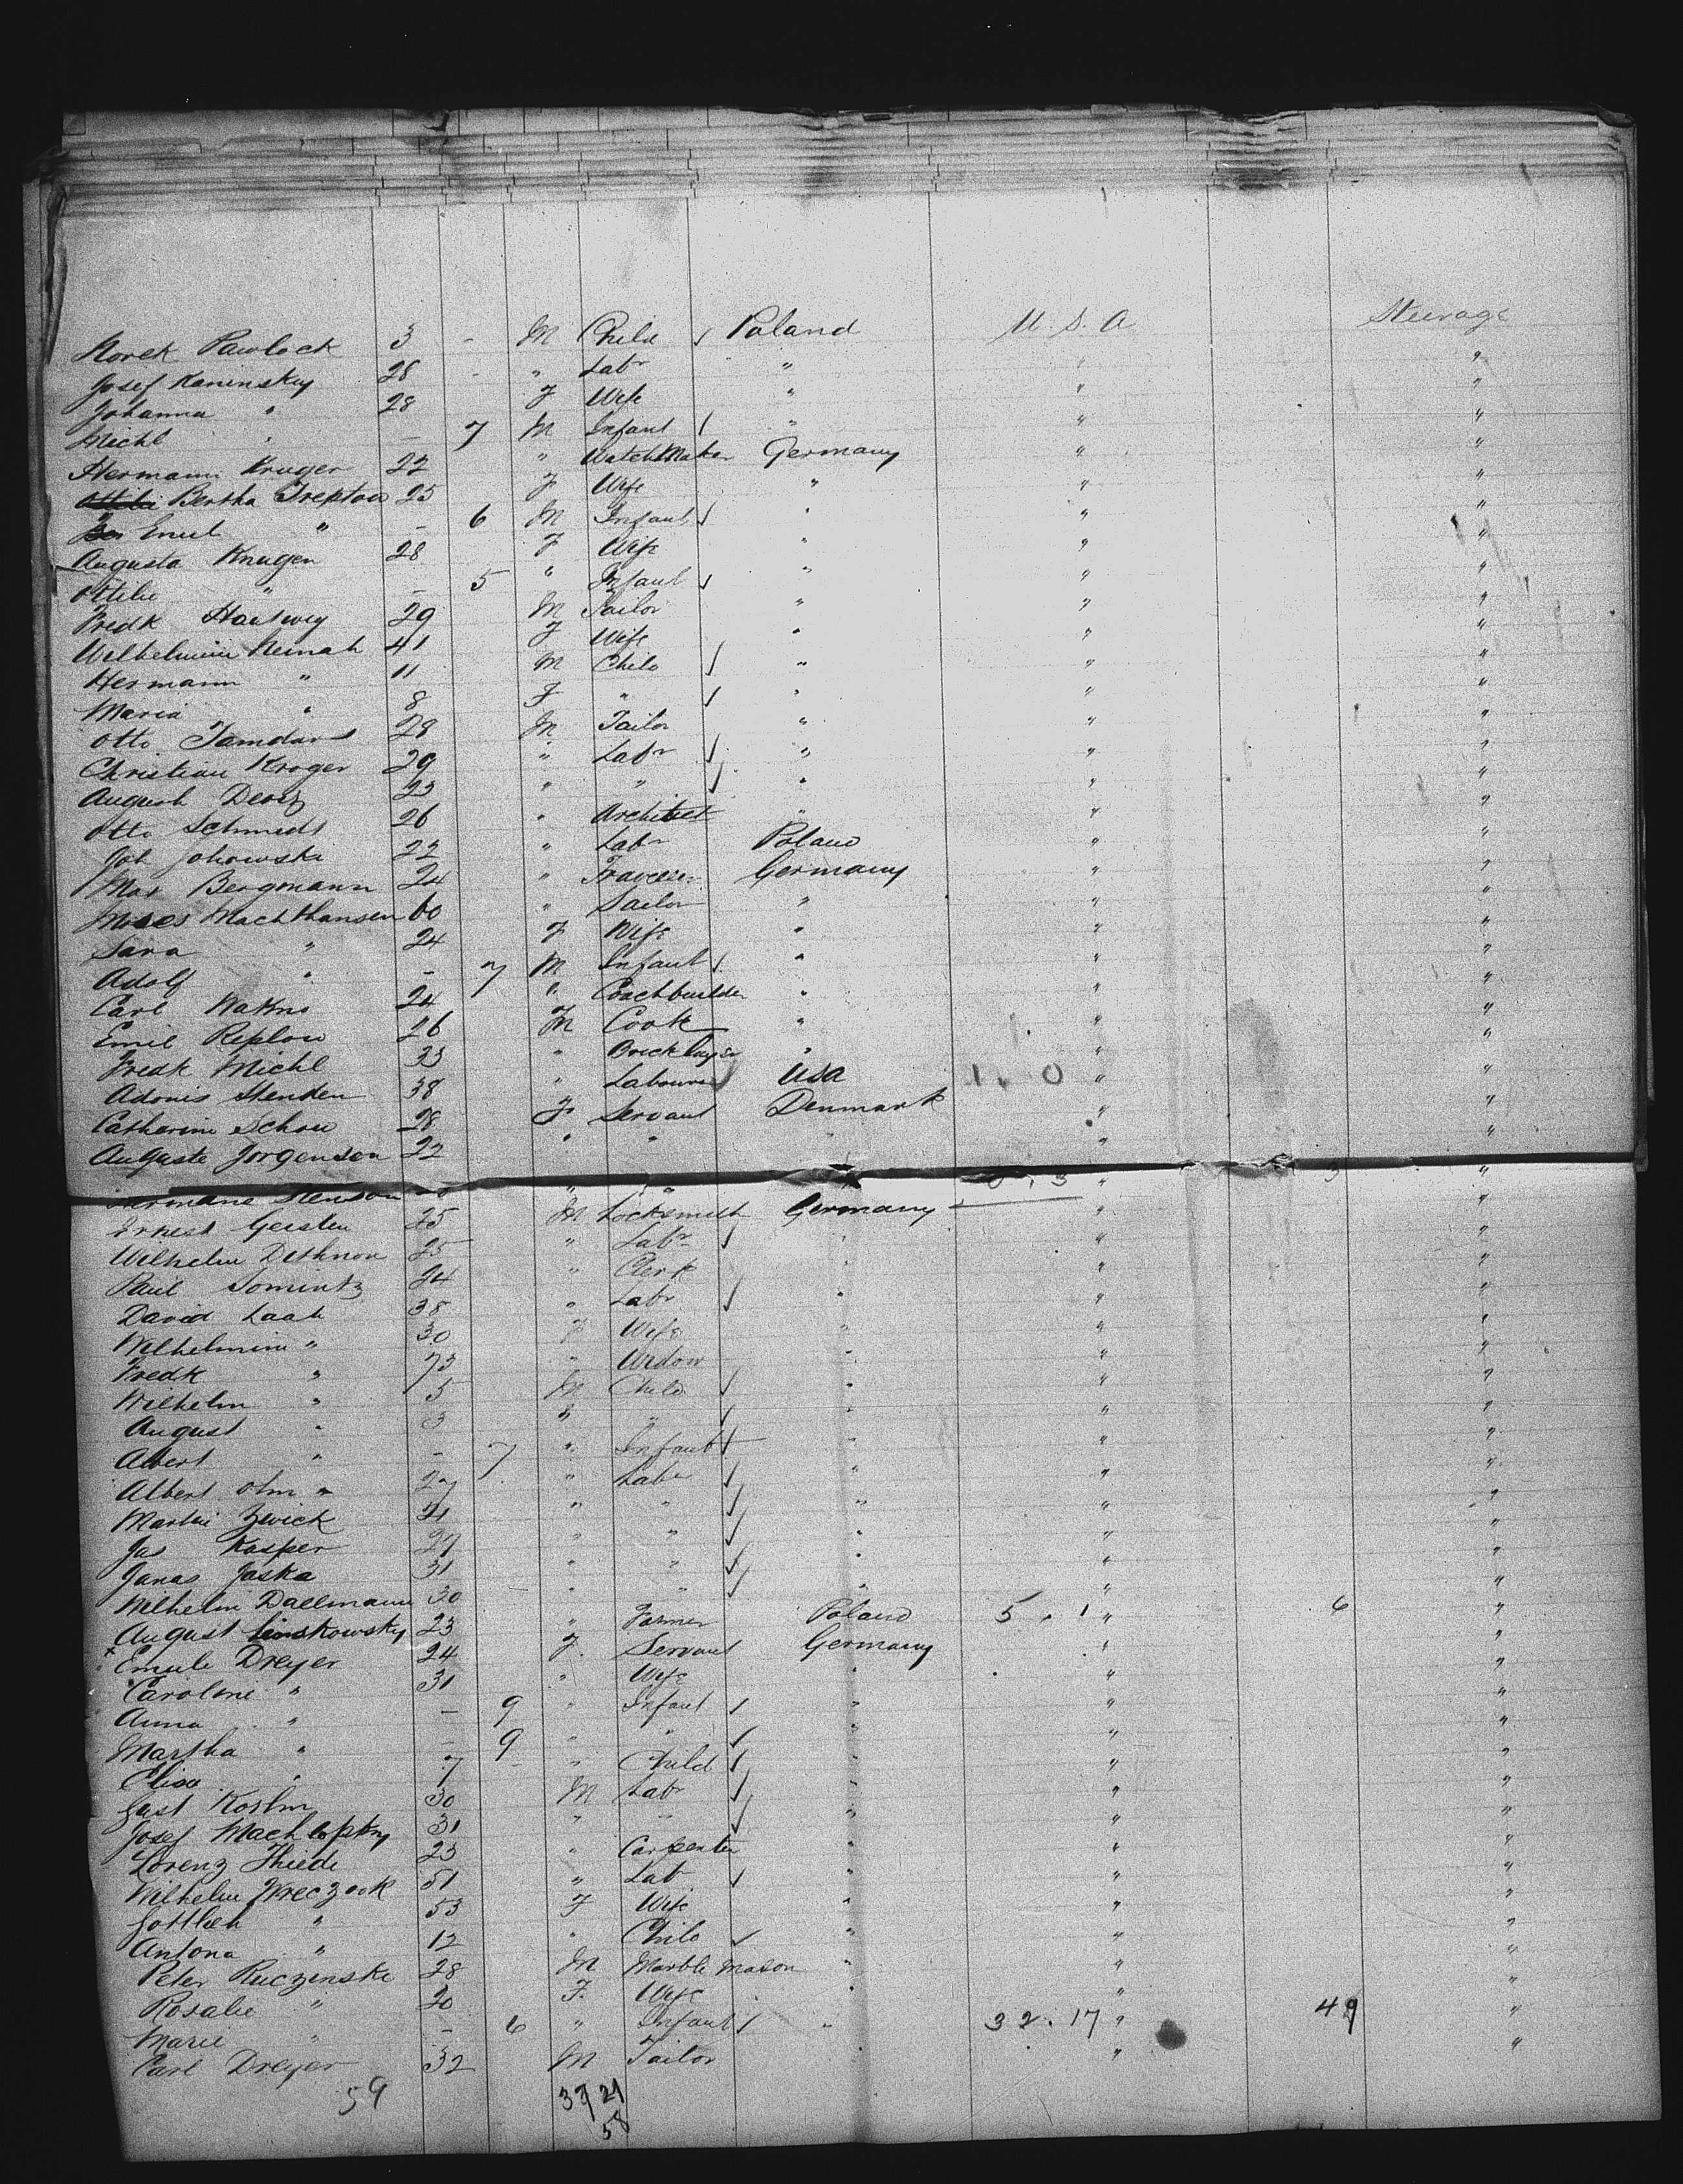 Pawlock 3 - M Child Poland U.S.A Steerage
Josef Kaninsky 28 - " Labr " " "
Johanna " 28 F Wife " " "
Michl " - 7 M Infant " " "
Hermann Kruger 22 " WatchMaker Germany " "
Bertha Treptow 25 F Wife " " "
Emil " - 6 M Infant " " "
Augusta Krugen 28 F Wife " " "
Ottilie " - 5 " Infant " " "
Fredk 29 M Tailor " " "
41 F Wife " " "
Hermann " 11 M Child " " "
Maria " 8 F " " " "
Otto 28 M Tailor " " "
Christian Kroger 29 " Labr " " "
August 23 " " " " "
Otto Schmidt 26 " Architect " " "
22 " Labr Poland " "
Max Bergmann 24 " Traveler Germany " "
Moses Machthansen 60 " Sailor " " "
Sara " 24 F Wife " " "
Adolf " - 7 M Infant " " "
Carl 24 " Coachbuilder " " "
Emil Replow 26 M Cook " " "
Fredk Michl 33 " Bricklayer " " "
Adonis Stenden 38 " Labourer USA 1.0 " "
Catherine Schou 28 F Servant Denmark " "
Auguste Jorgensen 22 " " " " "
" " 0.3 " 3 "
Ernest Gersten 25 M Locksmith Germany " "
Wilhelm 25 " Labr " " "
Paul Somintz 24 " Clerk " " "
David Laak 38 " Labr " " "
Wilhelmine " 30 F Wife " " "
Fredk " 73 " Widow " " "
Wilhelm " 5 M Child " " "
August " 3 " " " " "
Albert " - 7 " Infant " " "
Albert Olm 27 " Labr " " "
Martin Zwick 21 " " " " "
Jas Kasper 27 " " " " "
Janas Jaska 31 " " " " "
Wilhelm Dallmann 30 " " " " "
August 23 " Farmer Poland 5.1 " 6 "
Emile Dreyer 24 F. Servant Germany " "
Caroline " 31 " Wife " " "
Anna " - 9 " Infant " " "
Martha " - 9 " " " " "
Elisa " 7 " Child " " "
Gust 30 M Labr " " "
Josef 31 " " " " "
Lorenz Thiede 23 " Carpenter " " "
Wilhelm Wreczook 51 " Lab " " "
Gottlieb " 53 F Wife " " "
Antona " 12 " Child " " "
Peter Ruczinski 28 M Marble Mason " " "
Rosalie " 20 F. Wife " " "
Marie " - 6 " Infant " 32.17 " 49 "
Carl Dreyer 32 M Tailor " "
59 37 21
58